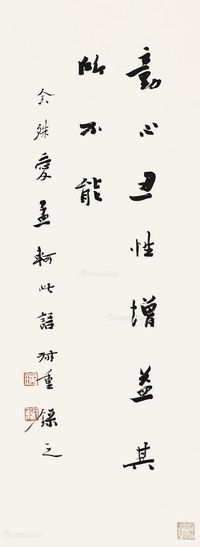 動心忍性增益其
所不能
余殊愛孟軻此語𢹂重錄之